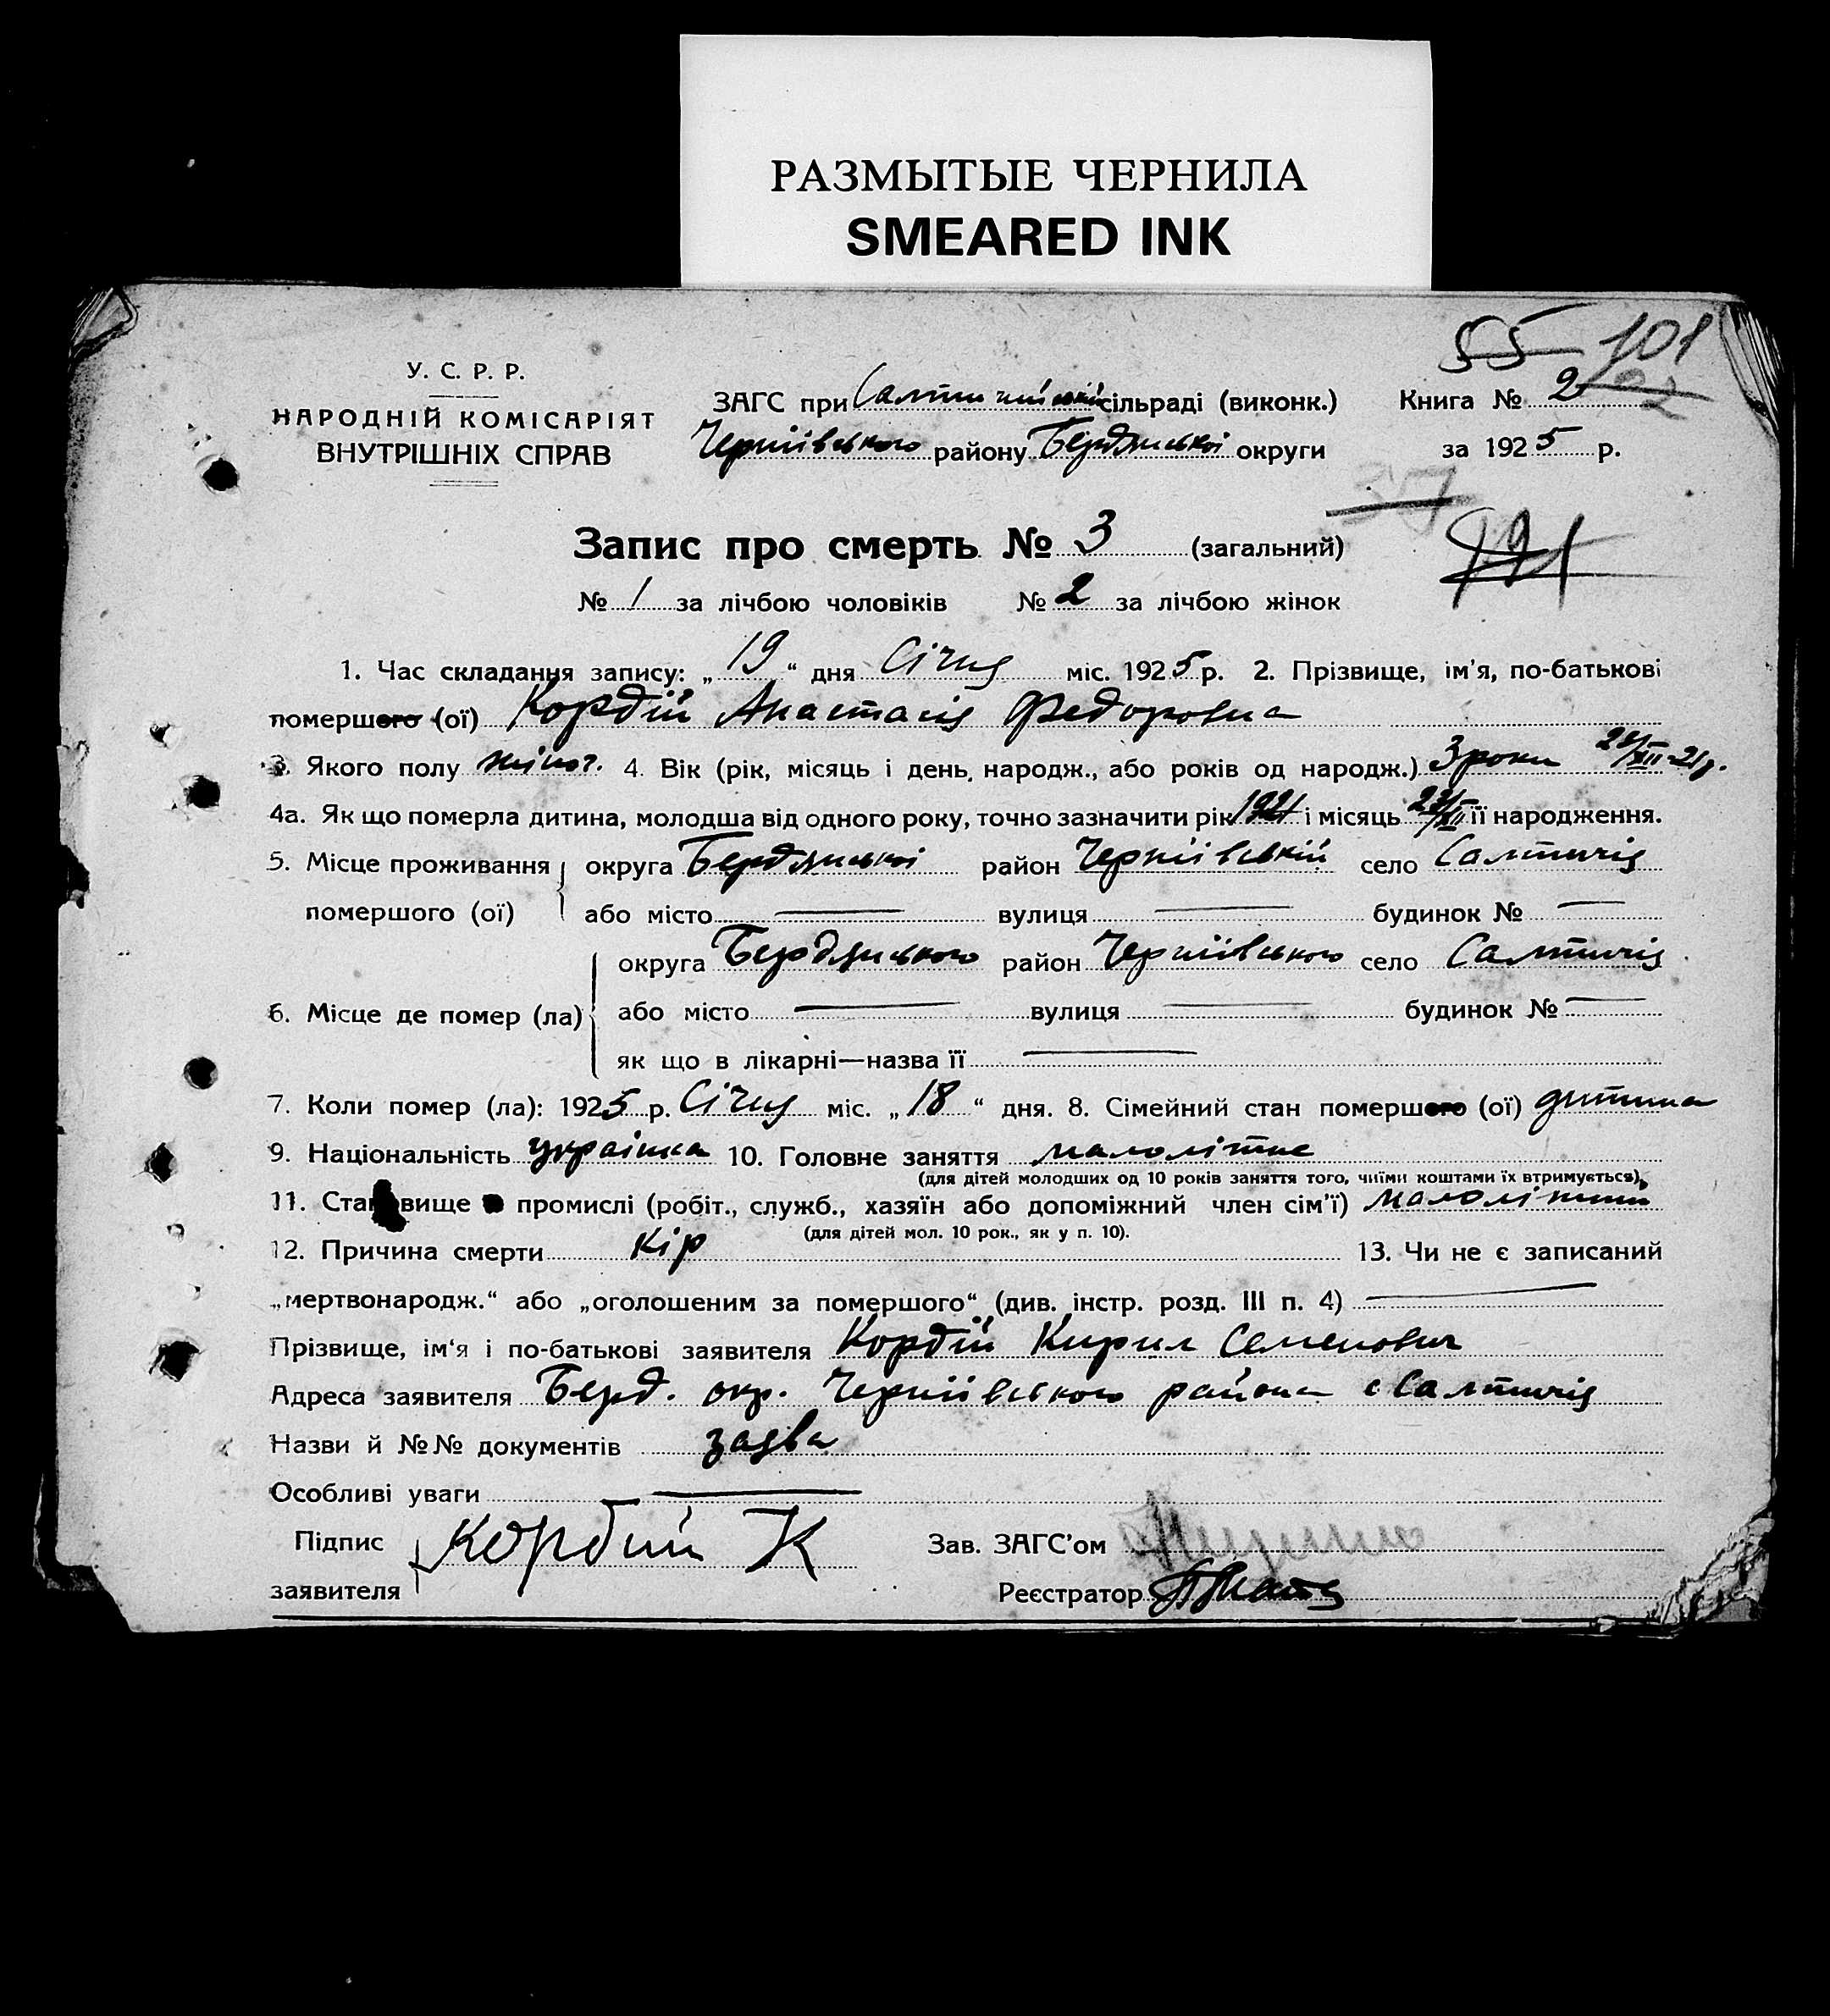 РАЗМЫТЫЕ ЧЕРНИЛА
SMEARED INK
55 101
У. С. Р. Р.
НАРОДНІЙ КОМІСАРІЯТ
ВНУТРІШНІХ СПРАВ
ЗАГС при сільраді (виконк.) Книга № 2
Черніівського району Бердянської округи за 1925 р.
357
191
Запис про смерть № 3 (загальний)
№ 1 за лічбою чоловіків № 2 за лічбою жінок
1. Час складання запису: „ 19 “ дня Січня міс. 1925 р. 2. Прізвище, ім'я, по-батькові
помершого (ої) Кордій Анастасія Федоровна
3. Якого полу жіноч. 4. Вік (рік, місяць і день, народж., або років од народж.) 3 роки XII-21 р.
4а. Як що померла дитина, молодша від одного року, точно зазначити рік 1921 і місяць її народження.
5. Місце проживання округа Бердянської район Черніівській село Салтичія
помершого (ої) або місто — вулиця — будинок № —
округа Бердянського район Черніівського село Салтичія
6. Місце де помер (ла) або місто — вулиця — будинок № —
як що в лікарні—назва її —
7. Коли помер (ла): 1925 р. Січня міс. „ 18 “ дня. 8. Сімейний стан помершого (ої) дитина
9. Національність украінка 10. Головне заняття малолітне
(для дітей молодших од 10 років заняття того, чиїми коштами їх втримується).
11. Становище в промислі (робіт., служб., хазяїн або допоміжний член сім'ї) малолітний
(для дітей мол. 10 рок., як у п. 10).
12. Причина смерти кір 13. Чи не є записаний
„мертвонародж.“ або „оголошеним за помершого“ (див. інстр. розд. III п. 4) —
Прізвище, ім'я і по-батькові заявителя Кордій Кирил Семенович
Адреса заявителя Берд. окр. Черніівського района с Салтичія
Назви й №№ документів заява
Особливі уваги —
Підпис Кордий К Зав. ЗАГС'ом
заявителя Реєстратор